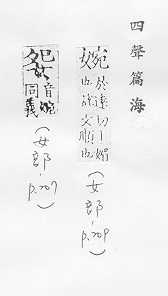 四聲篇海
婉於遠切媚也說文順也
(女部-p.709)
妴音婉同義
(女部-p.707)